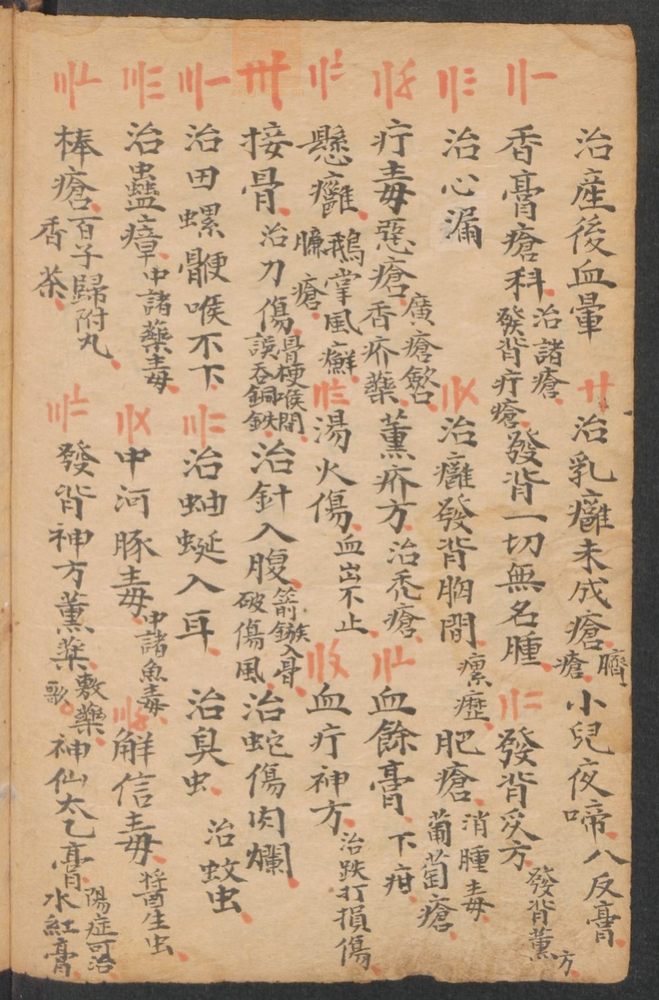 治產後血暈 〹 治乳癰未成瘡 臍瘡 小兒夜啼 八反膏
〢一 香膏瘡科 治諸瘡 發背疔瘡 發背一切無名腫 〢二 發背灸方 發背薰方
〢三 治心漏 〢〤 治癰發背胸間 瘰癧 肥瘡 消腫毒 葡萄瘡
〢〥 疔毒惡瘡 廣瘡 香疥藥 薰疥方 治禿瘡 〢〦 血餘膏 下疳
〢〧 懸癰 鵝掌風癬 臁瘡 〢〨 湯火傷 血出不止 〢〩 血疔神方 治跌打損傷
〺 接骨 治刀傷 骨梗喉間 誤吞銅鉄 治針入腹 箭鏃入骨 破傷風 治蛇傷肉爛
〣一 治田螺骾喉不下 〣二 治蚰蜒入耳 治臭虫 治蚊虫
〣三 治蠱瘴 中諸藥毒 〣〤 中河豚毒 中諸魚毒 〣〥 解信毒 醬生虫
〣〦 棒瘡 百子歸附丸 香茶 〣〧 發背神方薰藥 敷藥歌 神仙太乙膏 陽症可治 水紅膏